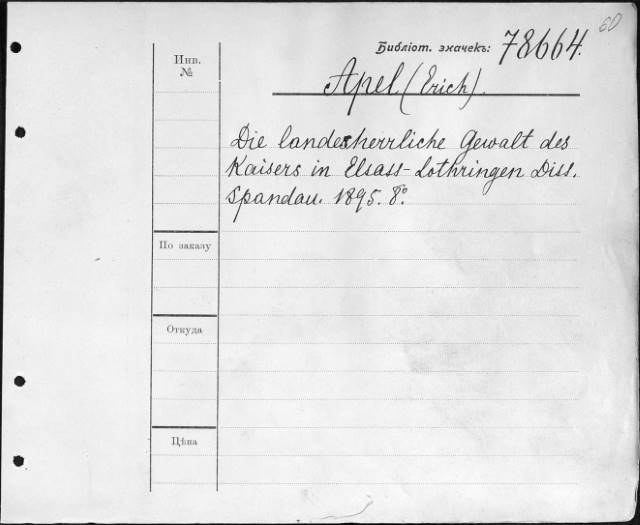 60
Библіот. значекъ: 78664.
Инв.
№
Apel (Erich).
Die landesherrliche Gewalt des
Kaisers in Elsass-Lothringen Diss.
Spandau. 1895. 8°.
По заказу
Откуда
Цѣна